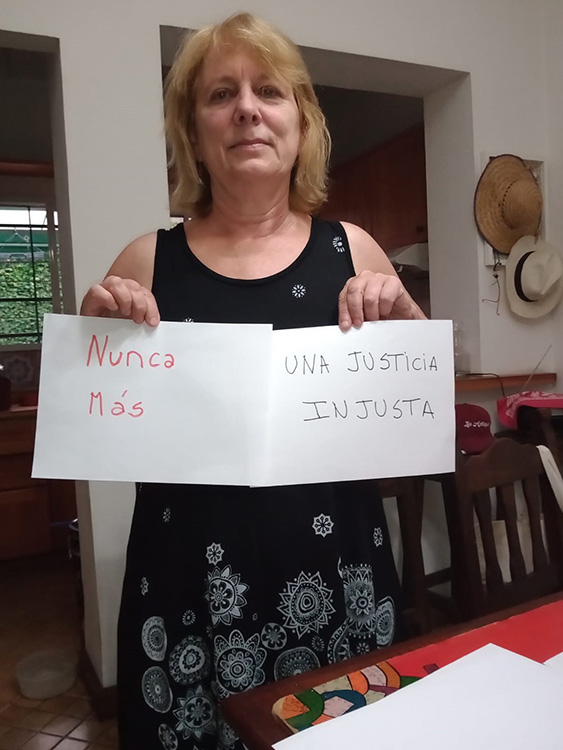 Nunca
Más
UNA JUSTICIA
INJUSTA